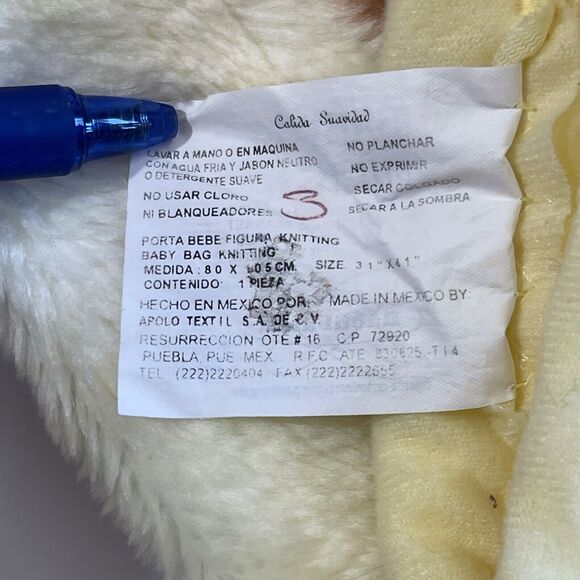 Calida Suavidad
LAVAR A MANO O EN MAQUINA
CON AGUA FRIA Y JABON NEUTRO
O DETERGENTE SUAVE
NO USAR CLORO
NI BLANQUEADORES
3
NO PLANCHAR
NO EXPRIMIR
SECAR COLGADO
SECAR A LA SOMBRA
PORTA BEBE FIGURA KNITTING
BABY BAG KNITTING
MEDIDA: 80 X 105 CM. SIZE 31"X41"
CONTENIDO: 1 PIEZA
HECHO EN MEXICO POR: MADE IN MEXICO BY:
APOLO TEXTIL S.A. DE C.V
RESURRECCION OTE # 16 C.P 72920
PUEBLA, PUE MEX. R.F.C ATE 830825-T14
TEL (222)2220404 FAX (222)2222655